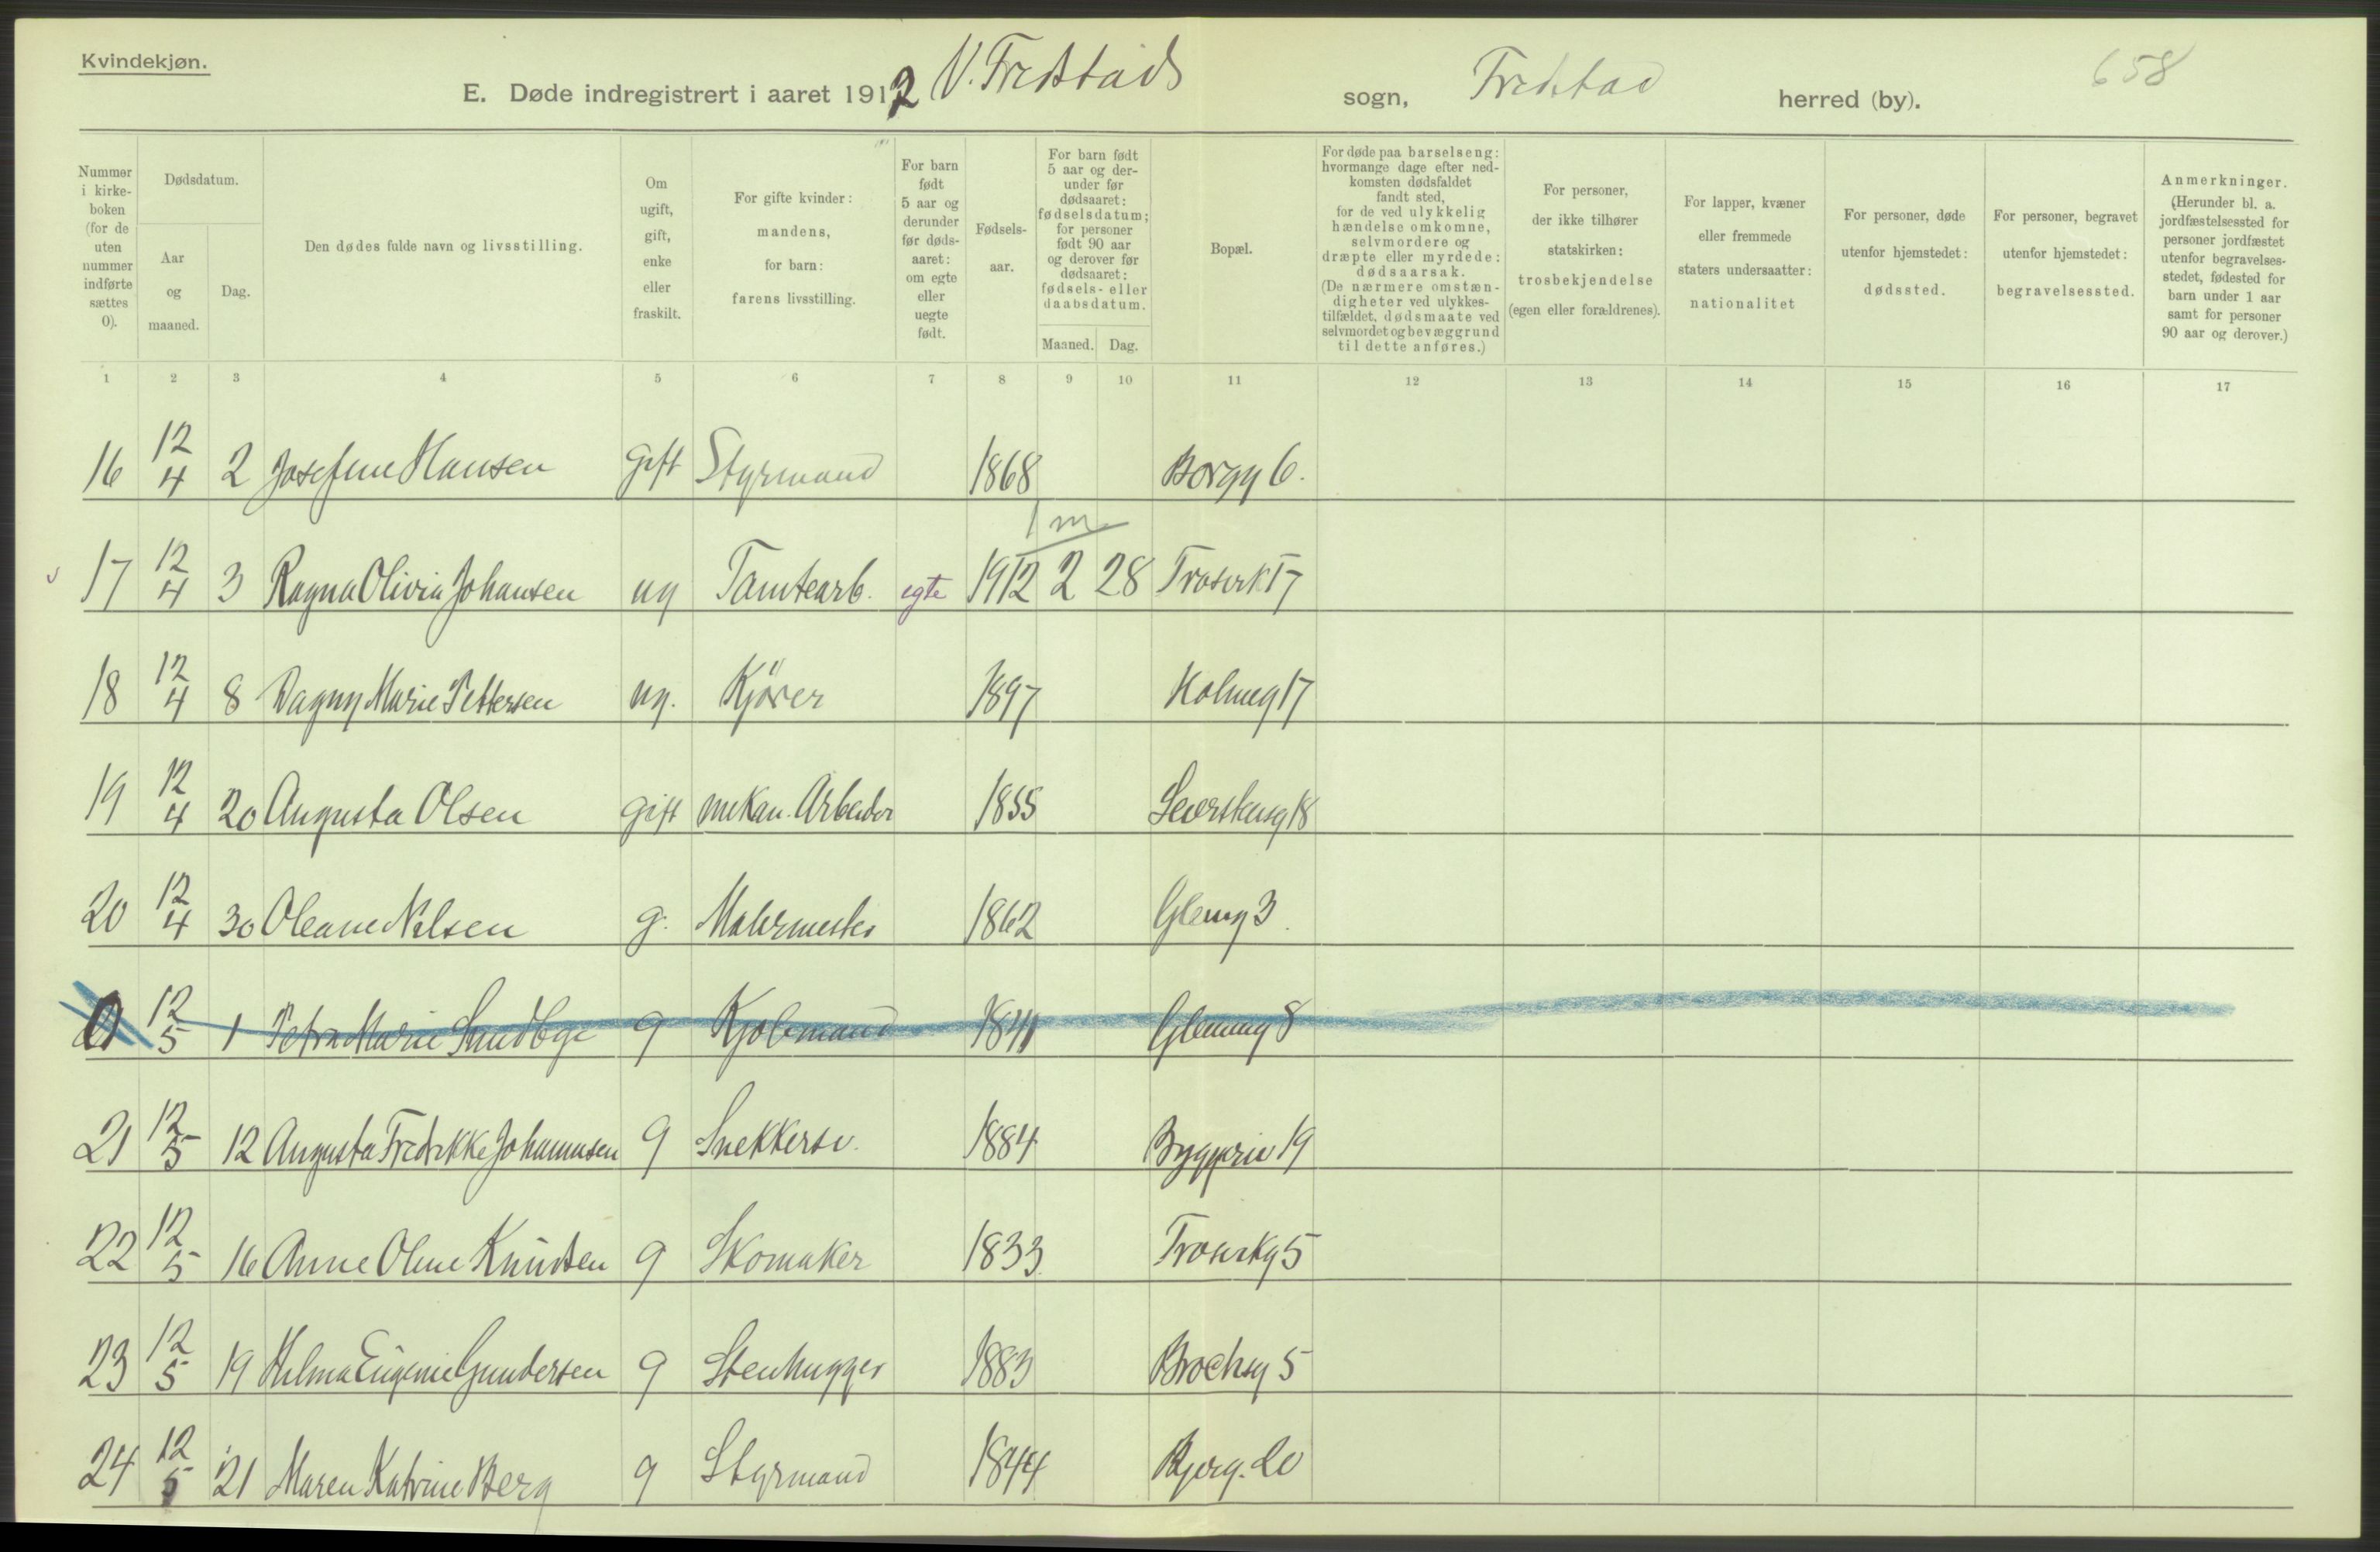 Kvindekjøn.
E. Døde indregistrert i aaret 1912 V. Fredstads sogn, Fredstad herred (by).
658
Nummer i kirkeboken (for de uten nummer indførte sættes 0).
Dødsdatum.
Aar og maaned.
Dag.
Den dødes fulde navn og livsstilling.
Om ugift, gift, enke eller fraskilt.
For gifte kvinder: mandens, for barn: farens livsstilling.
For barn født 5 aar og derunder før dødsaaret: om egte eller uegte født.
Fødselsaar.
For barn født 5 aar og derunder før dødsaaret: fødselsdatum; for personer født 90 aar og derover før dødsaaret: fødsels- eller daabsdatum.
Maaned. Dag.
Bopæl.
For døde paa barselseng: hvormange dage efter nedkomsten dødsfaldet fandt sted, for de ved ulykkelig hændelse omkomne, selvmordere og dræpte eller myrdede: dødsaarsak. (De nærmere omstændigheter ved ulykkestilfældet, dødsmaate ved selvmordet og bevæggrund til dette anføres.)
For personer, der ikke tilhører statskirken: trosbekjendelse (egen eller forældrenes).
For lapper, kvæner eller fremmede staters undersaatter: nationalitet
For personer, døde utenfor hjemstedet: dødssted.
For personer, begravet utenfor hjemstedet: begravelsessted.
Anmerkninger. (Herunder bl. a. jordfæstelsessted for personer jordfæstet utenfor begravelsesstedet, fødested for barn under 1 aar samt for personer 90 aar og derover.)
1 2 3 4 5 6 7 8 9 10 11 12 13 14 15 16 17
16 12 4 2 Josefine Hansen gift Styrmand 1868 Borgg 6.
1 m
17 12 4 3 Ragna Olivia Johansen ug Tomtearb. egte 1912 2 28 Trosvik 17
18 12 4 8 Dagny Marie Pettersen ug. Kjører 1897 Holmeg 17
19 12 4 20 Augusta Olsen gift mekan. Arbeider 1855 Seierstensg 18
20 12 4 30 Oleane Nilsen g. Malermester 1862 Glemg 3.
0 12 5 1 Petra Marie g Kjøbmand 1841 Glemmg 8
21 12 5 12 Augusta Fredrikke Johannesen g Snekkersv. 1884 Byggeriv 19
22 12 5 16 Anne Oline Knudsen g Skomaker 1833 Trosvikg 5
23 12 5 19 Hilma Eugenie Gundersen g Stenhugger 1883 Brochsg 5
24 12 5 21 Maren Katrine Berg g Styrmand 1844 20